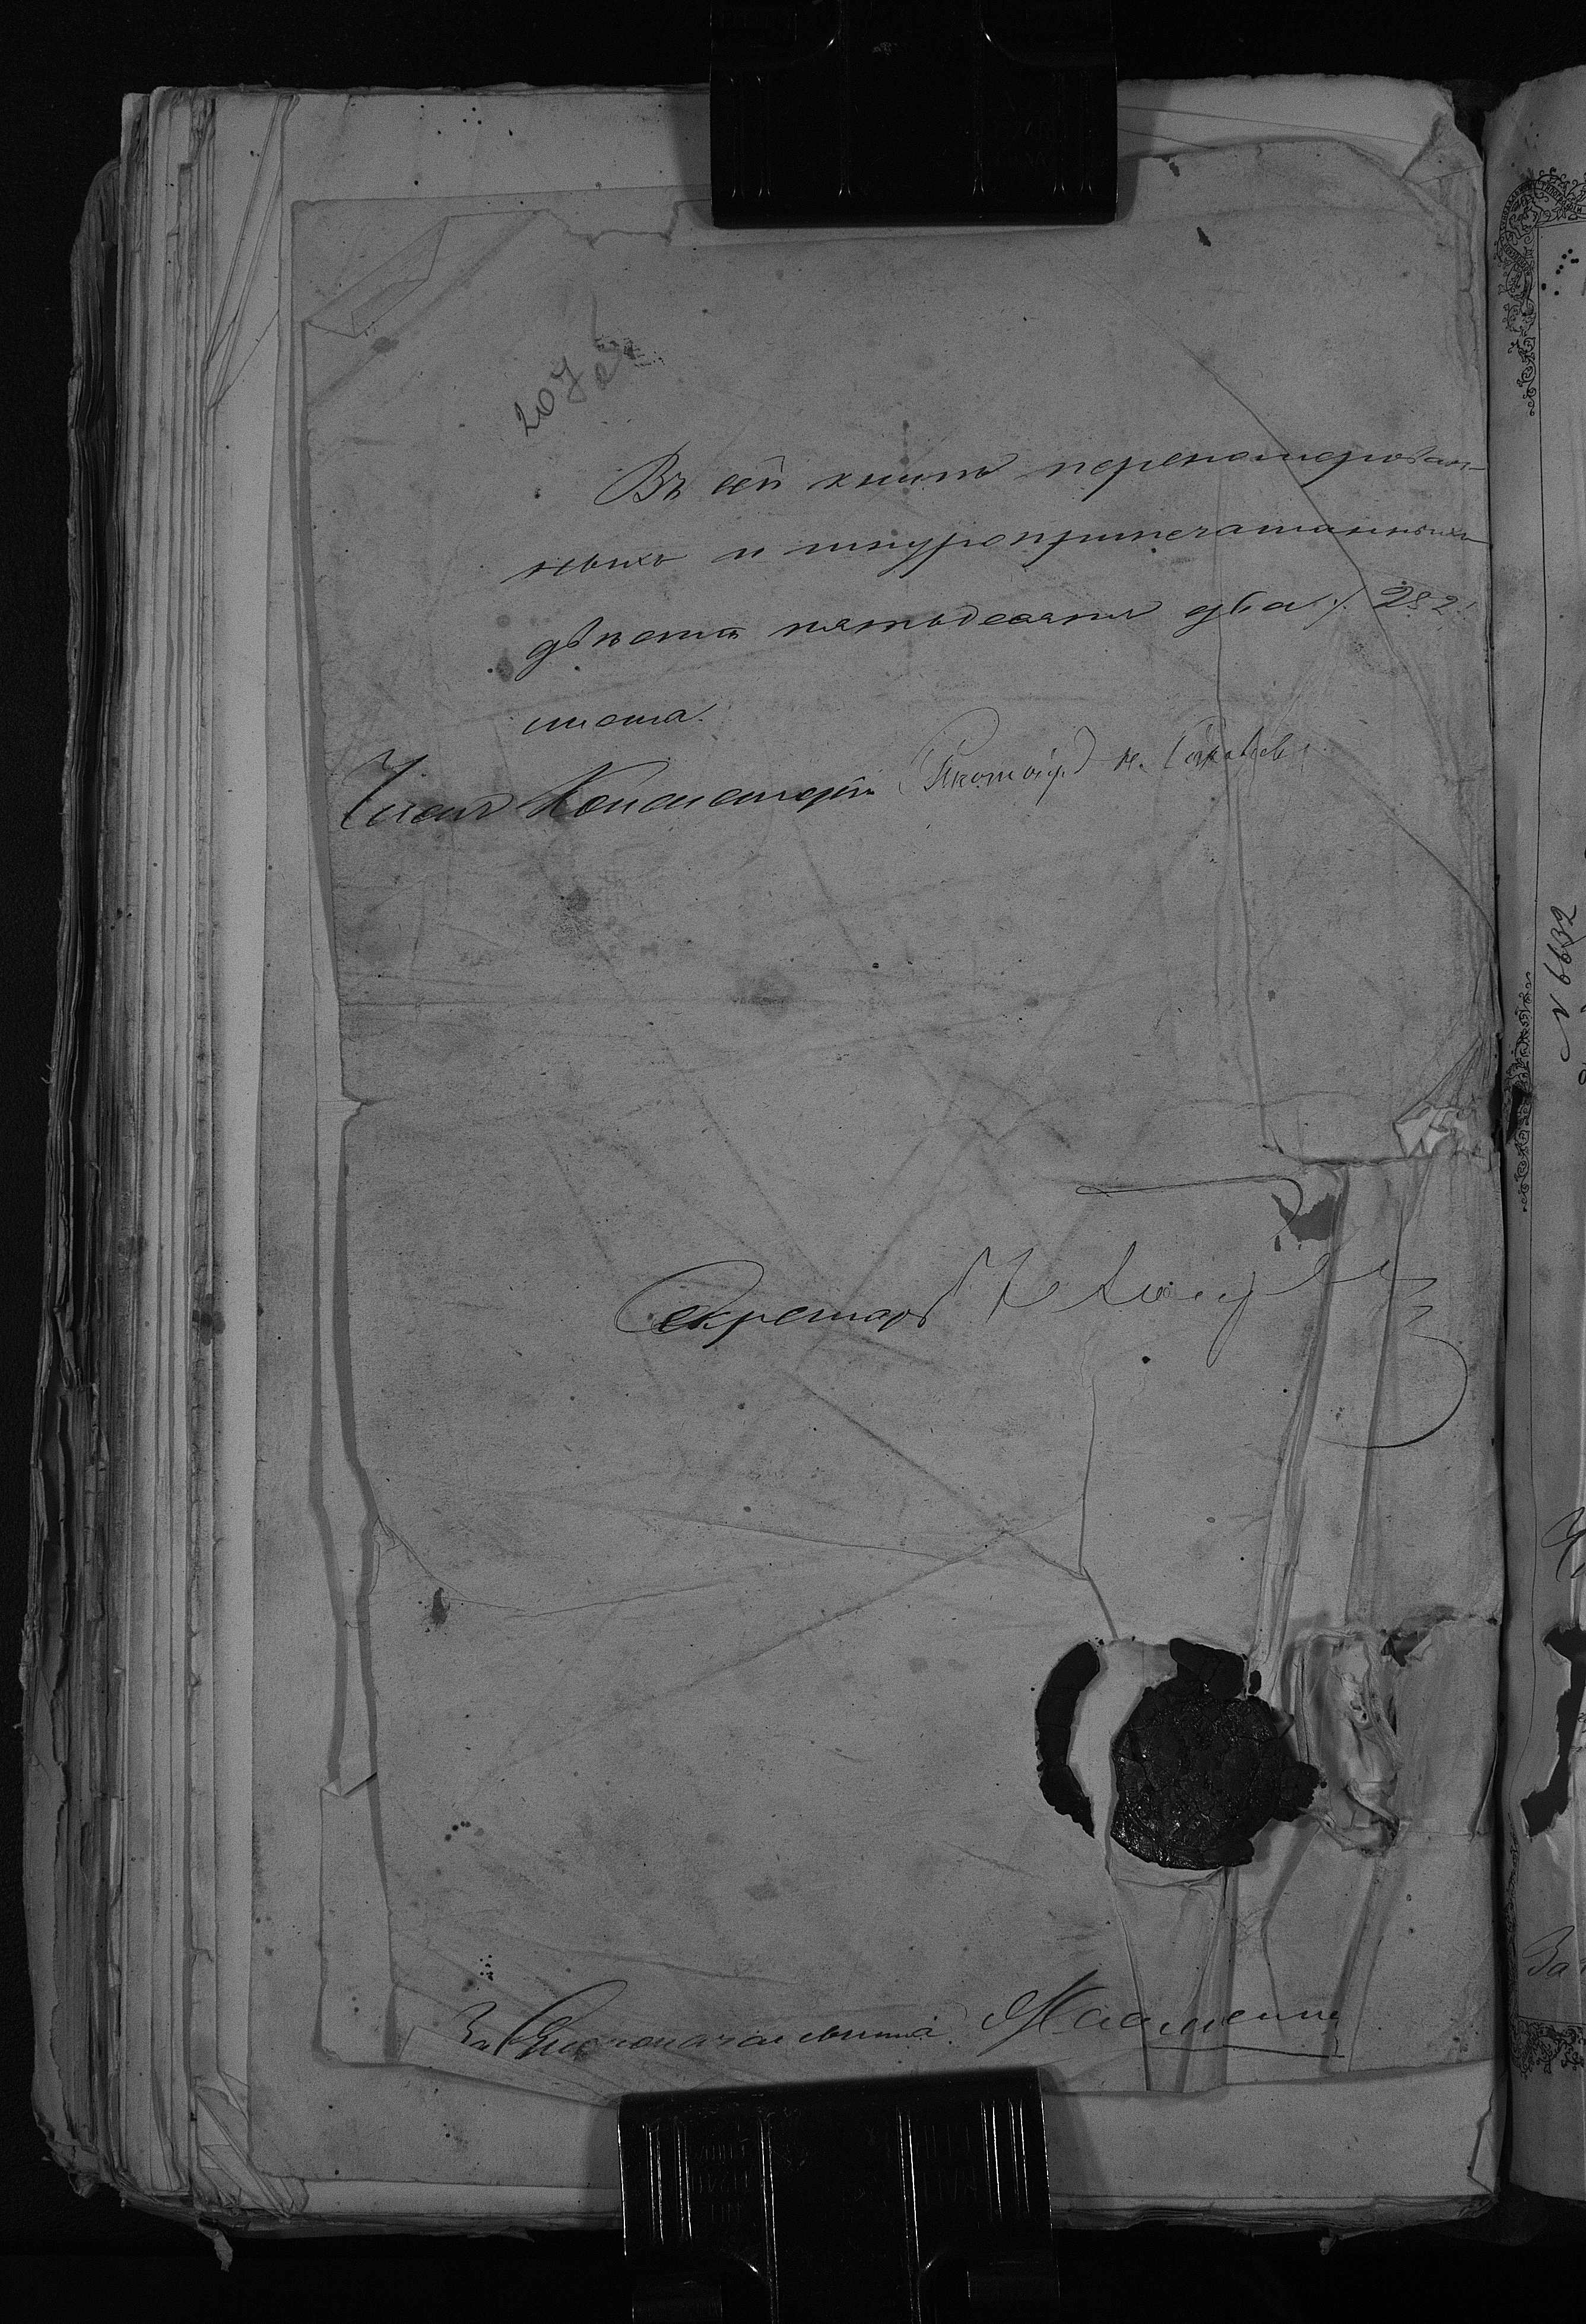 207
Въ сей книгѣ перенамерован-
ныхъ и шнуроприпечатанныхъ
двѣсти пятьдесятъ два /. 252.
листа.
Членъ Консисторіи Протоіер. Н.
Секретарь
За Столоначальника
N 6632
За